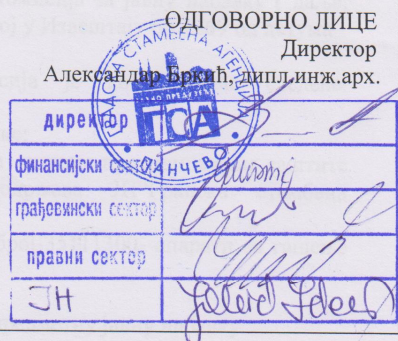 ОДГОВОРНО ЛИЦЕ
Директор
Александар Бркић, дипл.инж.арх.
ГРАДСКА СТАМБЕНА АГЕНЦИЈА
ГСА
ПАНЧЕВО
директор
финансијски сектор
грађевински сектор
правни сектор
ЈН